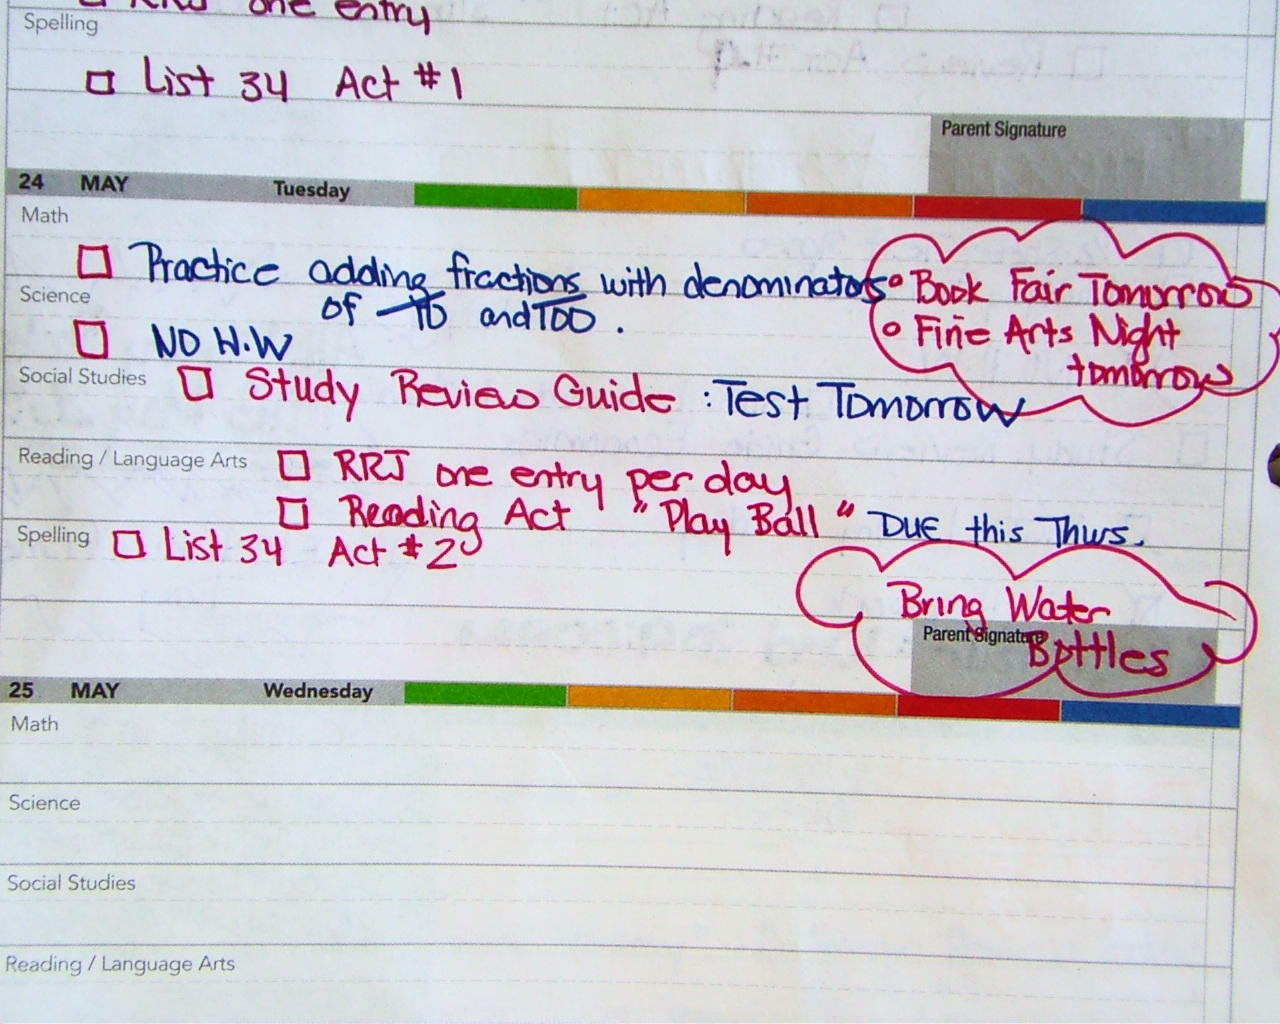 one entry
Spelling
List 34 Act #1
Parent Signature
24 MAY Tuesday
Math
Practice adding fractions with denominators
of 10 and 100.
• Book Fair Tomorrow
• Fine Arts Night
tomorrow
Science
NO H.W
Social Studies Study Review Guide : Test Tomorrow
Reading / Language Arts RRJ one entry per day
Reading Act "Play Ball" DUE this Thurs.
Spelling List 34 Act #2
Bring Water
Bottles
Parent Signature
25 MAY Wednesday
Math
Science
Social Studies
Reading / Language Arts